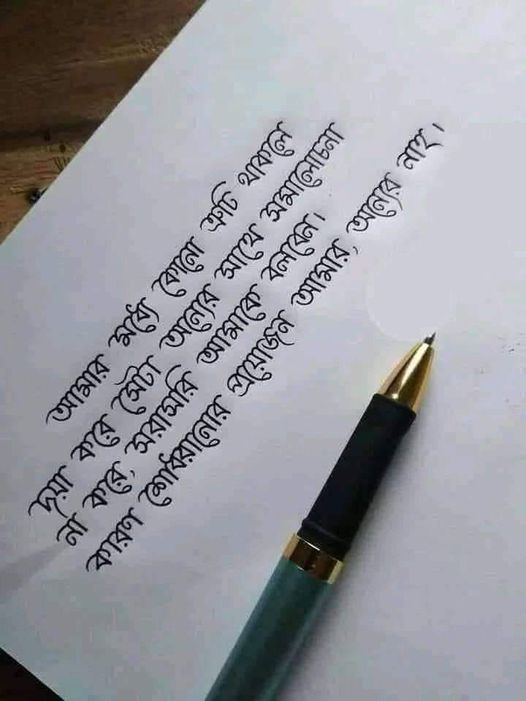 আমার মধ্যে কোনো ত্রুটি থাকলে
দয়া করে সেটা অন্যের সাথে সমালোচনা
না করে, সরাসরি আমাকে বলবেন।
কারণ শোধরানোর প্রয়োজন আমার, অন্যের নাহ্।